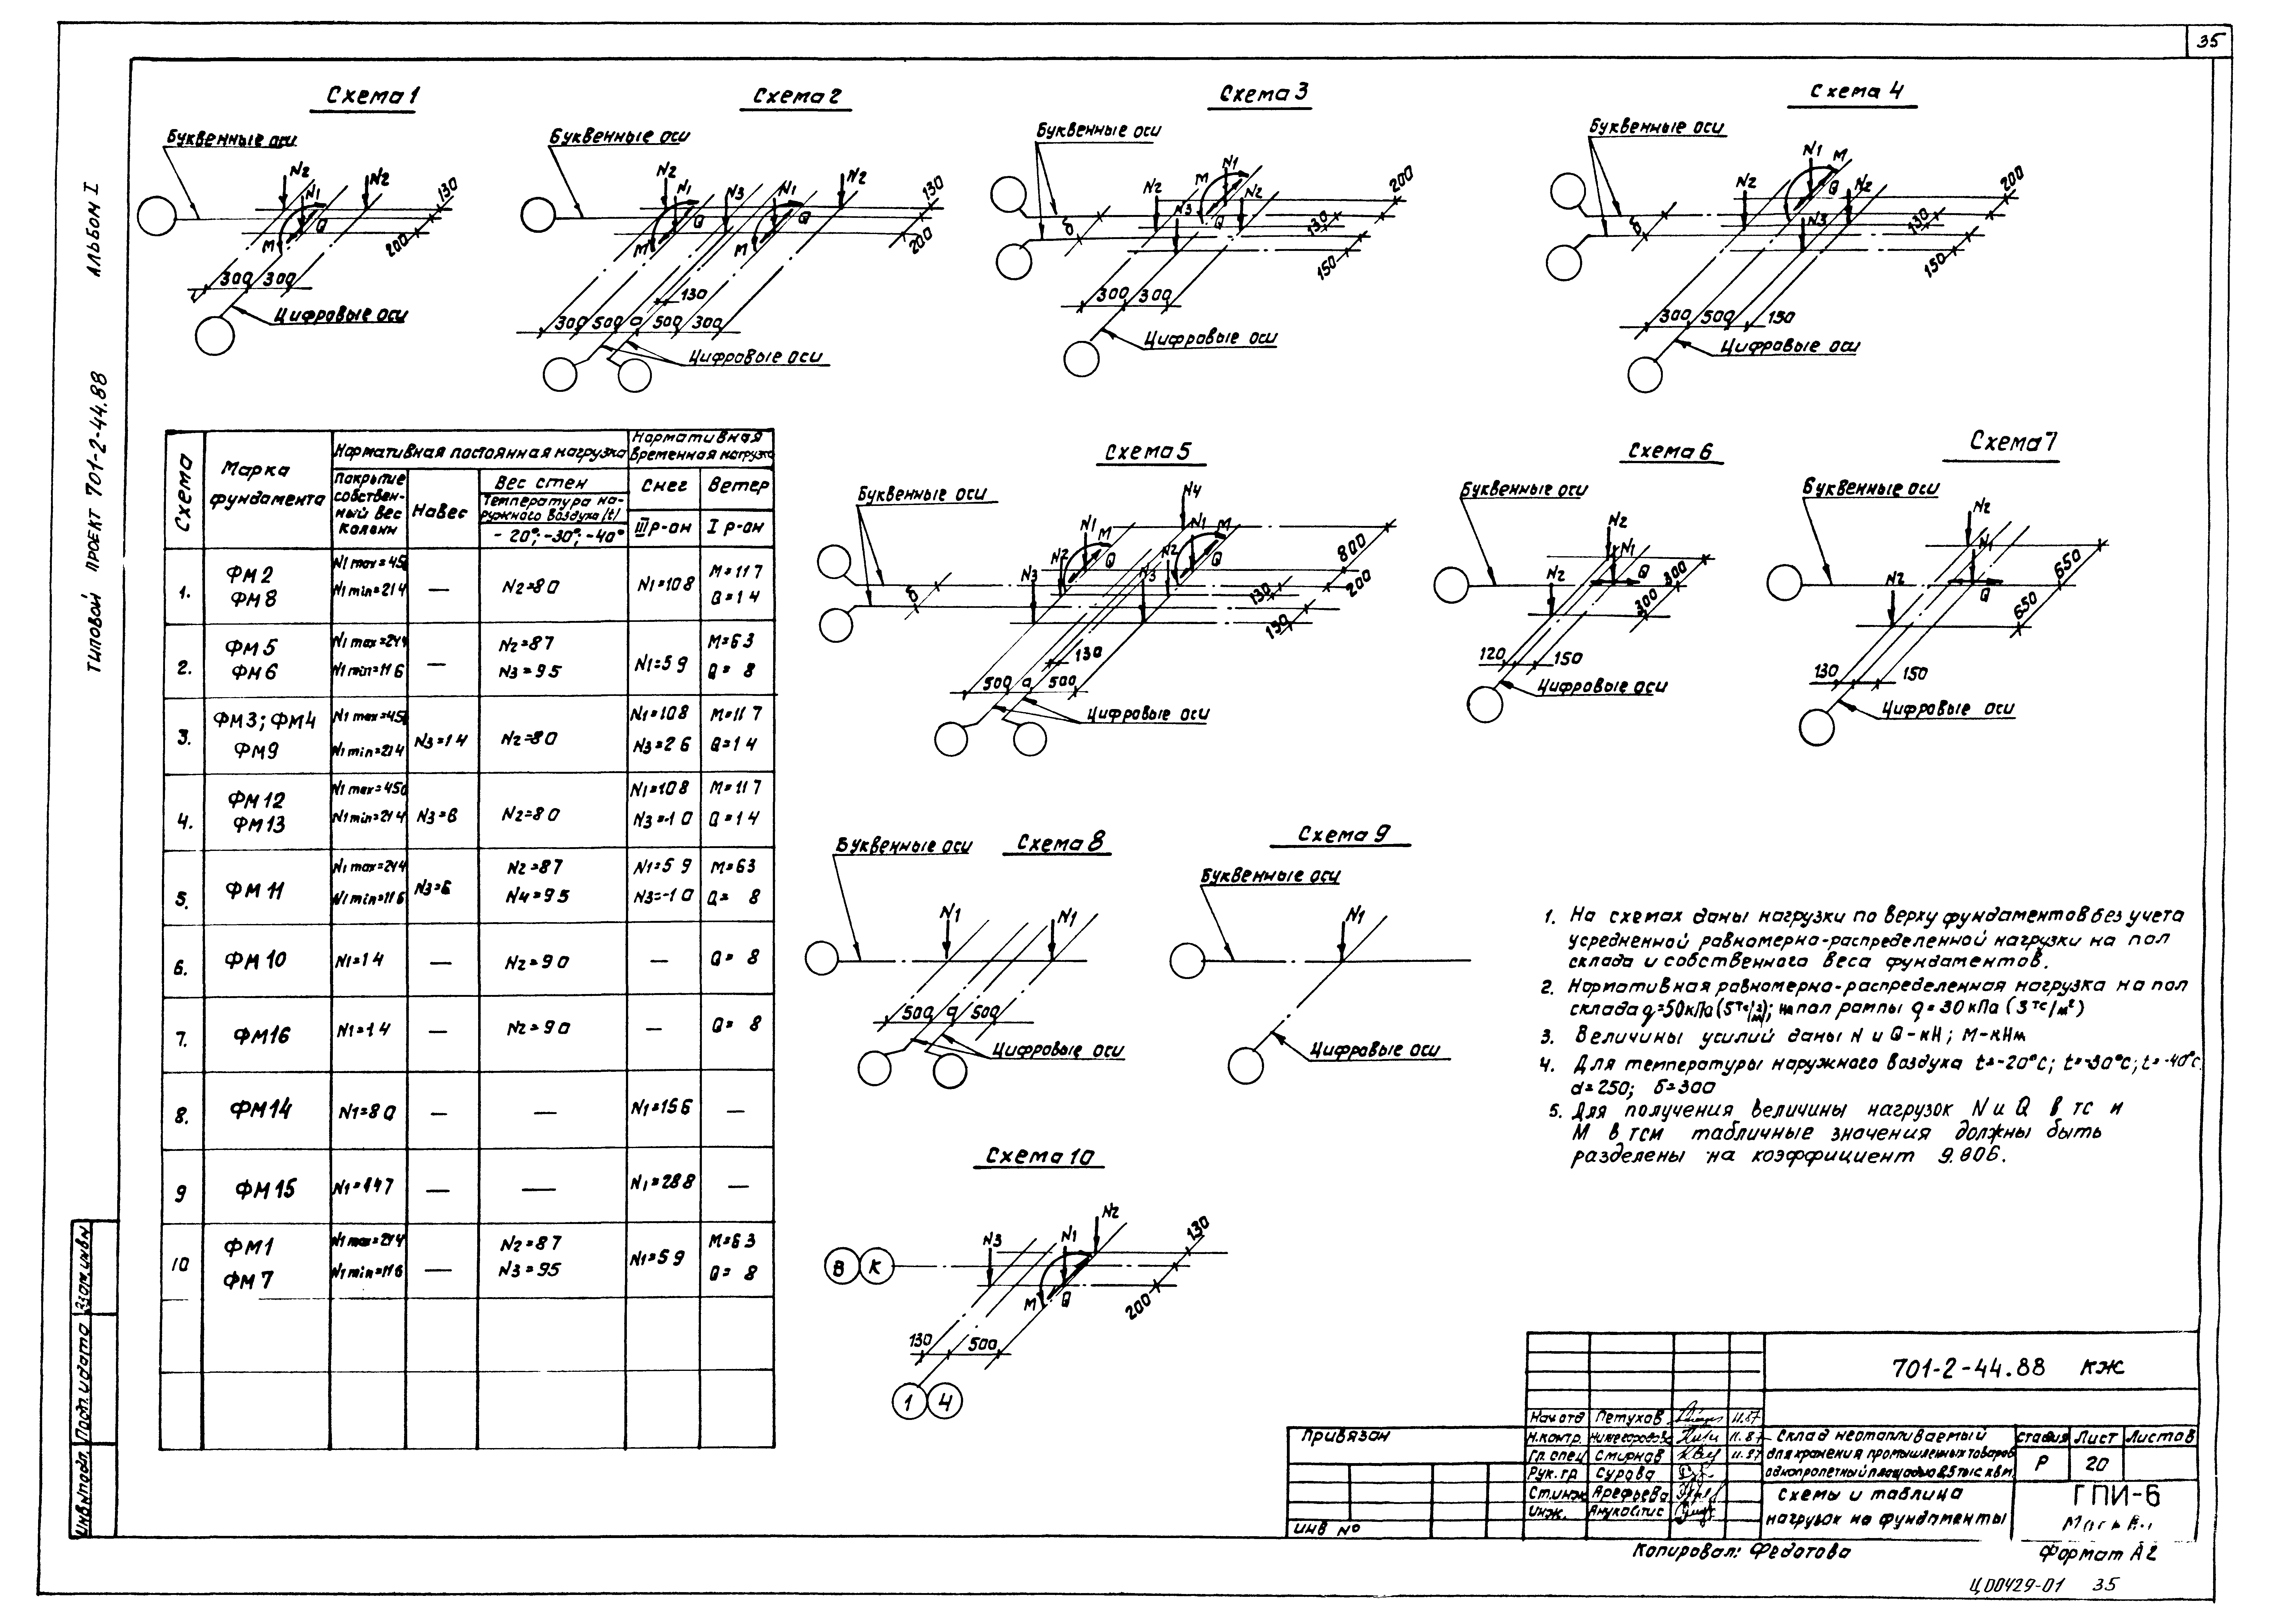 35
Схема 1
Буквенные оси
N2
N1
N2
130
M
Q
200
300 300
Цифровые оси
Схема 2
Буквенные оси
N2
N1
N3
N1
N2
130
M
M
Q
200
130
300 500 а 500 300
Цифровые оси
Схема 3
Буквенные оси
N1
M
N2
N2
N3
Q
200
б
130
150
300 300
Цифровые оси
Схема 4
Буквенные оси
N1
M
N2
N2
Q
N3
200
б
130
150
300 500 150
Цифровые оси
АЛЬБОМ I
ТИПОВОЙ ПРОЕКТ 701-2-44.88
Схема
Марка фундамента
Нормативная постоянная нагрузка
Нормативная временная нагрузка
Покрытие собственный вес колонн
Навес
Вес стен
Температура наружного воздуха (t)
-20°; -30°; -40°
Снег
III р-он
Ветер
I р-он
1. ФМ2 ФМ8 N1 max=450 N1 min=214 — N2=80 N1=108 M=117 Q=14
2. ФМ5 ФМ6 N1 max=244 N1 min=116 — N2=87 N3=95 N1=59 M=63 Q=8
3. ФМ3; ФМ4 ФМ9 N1 max=450 N1 min=214 N3=14 N2=80 N1=108 N3=26 M=117 Q=14
4. ФМ12 ФМ13 N1 max=450 N1 min=214 N3=6 N2=80 N1=108 N3=-10 M=117 Q=14
5. ФМ11 N1 max=244 N1 min=116 N3=6 N2=87 N4=95 N1=59 N3=-10 M=63 Q=8
6. ФМ10 N1=14 — N2=90 — Q=8
7. ФМ16 N1=14 — N2=90 — Q=8
8. ФМ14 N1=80 — — N1=156 —
9 ФМ15 N1=147 — — N1=288 —
10 ФМ1 ФМ7 N1 max=244 N1 min=116 — N2=87 N3=95 N1=59 M=63 Q=8
Схема 5
Буквенные оси
N4
N1
M
N1
M
N2
Q
N2
Q
N3
N3
б
800
200
130
150
130
500 а 500
Цифровые оси
Схема 6
Буквенные оси
N2
N1
Q
N2
300
300
120
150
Цифровые оси
Схема 7
Буквенные оси
N2
N1
N2
Q
650
650
130
150
Цифровые оси
Схема 8
Буквенные оси
N1
N1
500 а 500
Цифровые оси
Схема 9
Буквенные оси
N1
Цифровые оси
Схема 10
N2
N3
N1
130
В К
M
Q
200
130
500
1 4
1. На схемах даны нагрузки по верху фундаментов без учета
усредненной равномерно-распределенной нагрузки на пол
склада и собственного веса фундаментов.
2. Нормативная равномерно-распределенная нагрузка на пол
склада q=50кПа (5тс/м²); на пол рампы q=30кПа (3тс/м²)
3. Величины усилий даны N и Q-кН; М-кНм
4. Для температуры наружного воздуха t=-20°с; t=-30°с; t=-40°с.
а=250; б=300
5. Для получения величины нагрузок N и Q в тс и
М в тсм табличные значения должны быть
разделены на коэффициент 9.806.
701-2-44.88 КЖ
Нач отд Петухов 11.87
Н.контр. Нижегородова 11.87
Гл. спец Смирнов 11.87
Рук. гр Сурова
Ст.инж Арефьева
Инж.
Склад неотапливаемый
для хранения промышленных товаров
однопролетный площадью 2,5 тыс кв.м.
Стадия Лист Листов
Р 20
Схемы и таблица
нагрузок на фундаменты
ГПИ-6
Привязан
Инв №
Копировал: Федотова
Формат А2
ЦД0429-01 35
Инв.№подл.
Подп. и дата
Взам.инв.№